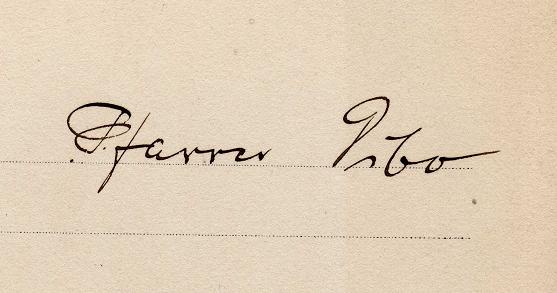 Pfarrer Vibo